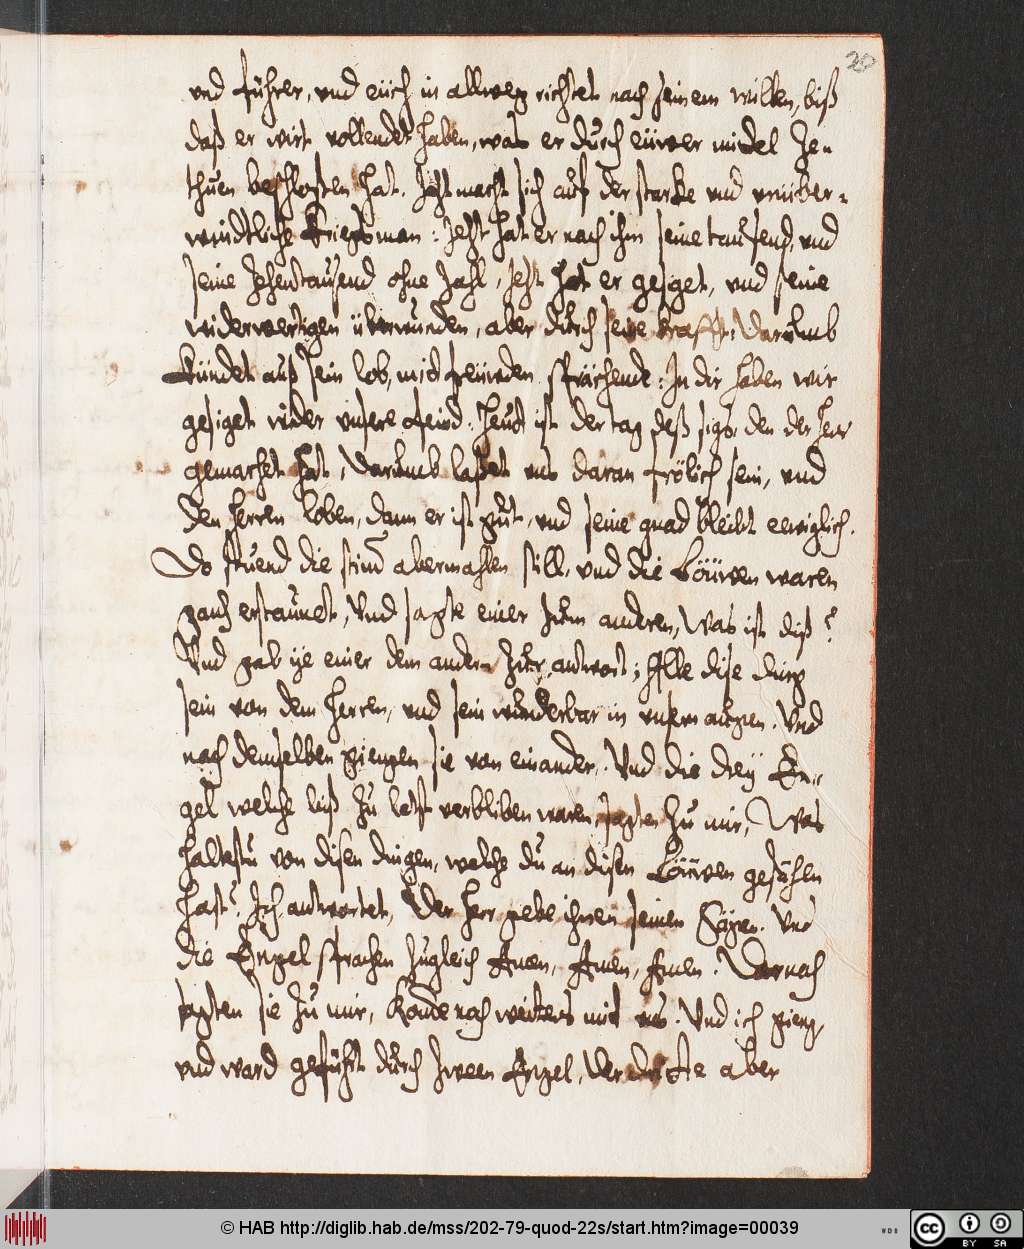 20
vnd führer, vnd eüch in allweg richtet nach seinem willen, biß
daß er wirt vollendet haben, was er durch eüwer midel ze„
thuen beschlossen hat. Jetzt macht sich auf der starke vnd vnüber„
windtliche Kriegsman: Jetzt hat er nach ihm seine tausend, vnd
seine zehentausend ohne zahl, Jetzt hat er gesiget, vnd seine
widerwertigen überwunden, aber durch seine krafft, Darumb
kündet auß sein lob, mit freüwden sprächende: In dir haben wir
gesiget wider vnsere feind. Heut ist der tag deß sigs, den der Herr
gemachet hat, Darumb laßet vns daran frölich sein, vnd
den Herren loben, dann er ist gut, vnd seine gnad bleibt ewiglich.
Do stuend die stim abermahlen still, vnd die Löüwen waren
gantz erstaunet, Vnd sagte einer zum anderen, Was ist diß?
Vnd gab ye einer dem andern zur antwort; Alle dise ding
sein von dem Herren, vnd sein wunderbar in vnsern augen. Vnd
nach demselben giengen sie von einander. Vnd die drey En„
gel welche biß zu letst verbliben waren, sagten zu mir, Was
haltestu von disen dingen, welche du an disen Löüwen gesehen
hast? Ich antwortet, Der Herr gebe ihnen seinen Sägen. Vnd
die Engel sprachen zugleich Amen, Amen, Amen. Darnach
sagten sie zu mir, Komme noch weiters mit vns. Vnd ich gieng,
vnd ward geführt durch zween Engel, Der dritte aber
© HAB http://diglib.hab.de/mss/202-79-quod-22s/start.htm?image=00039
WDB
cc BY SA